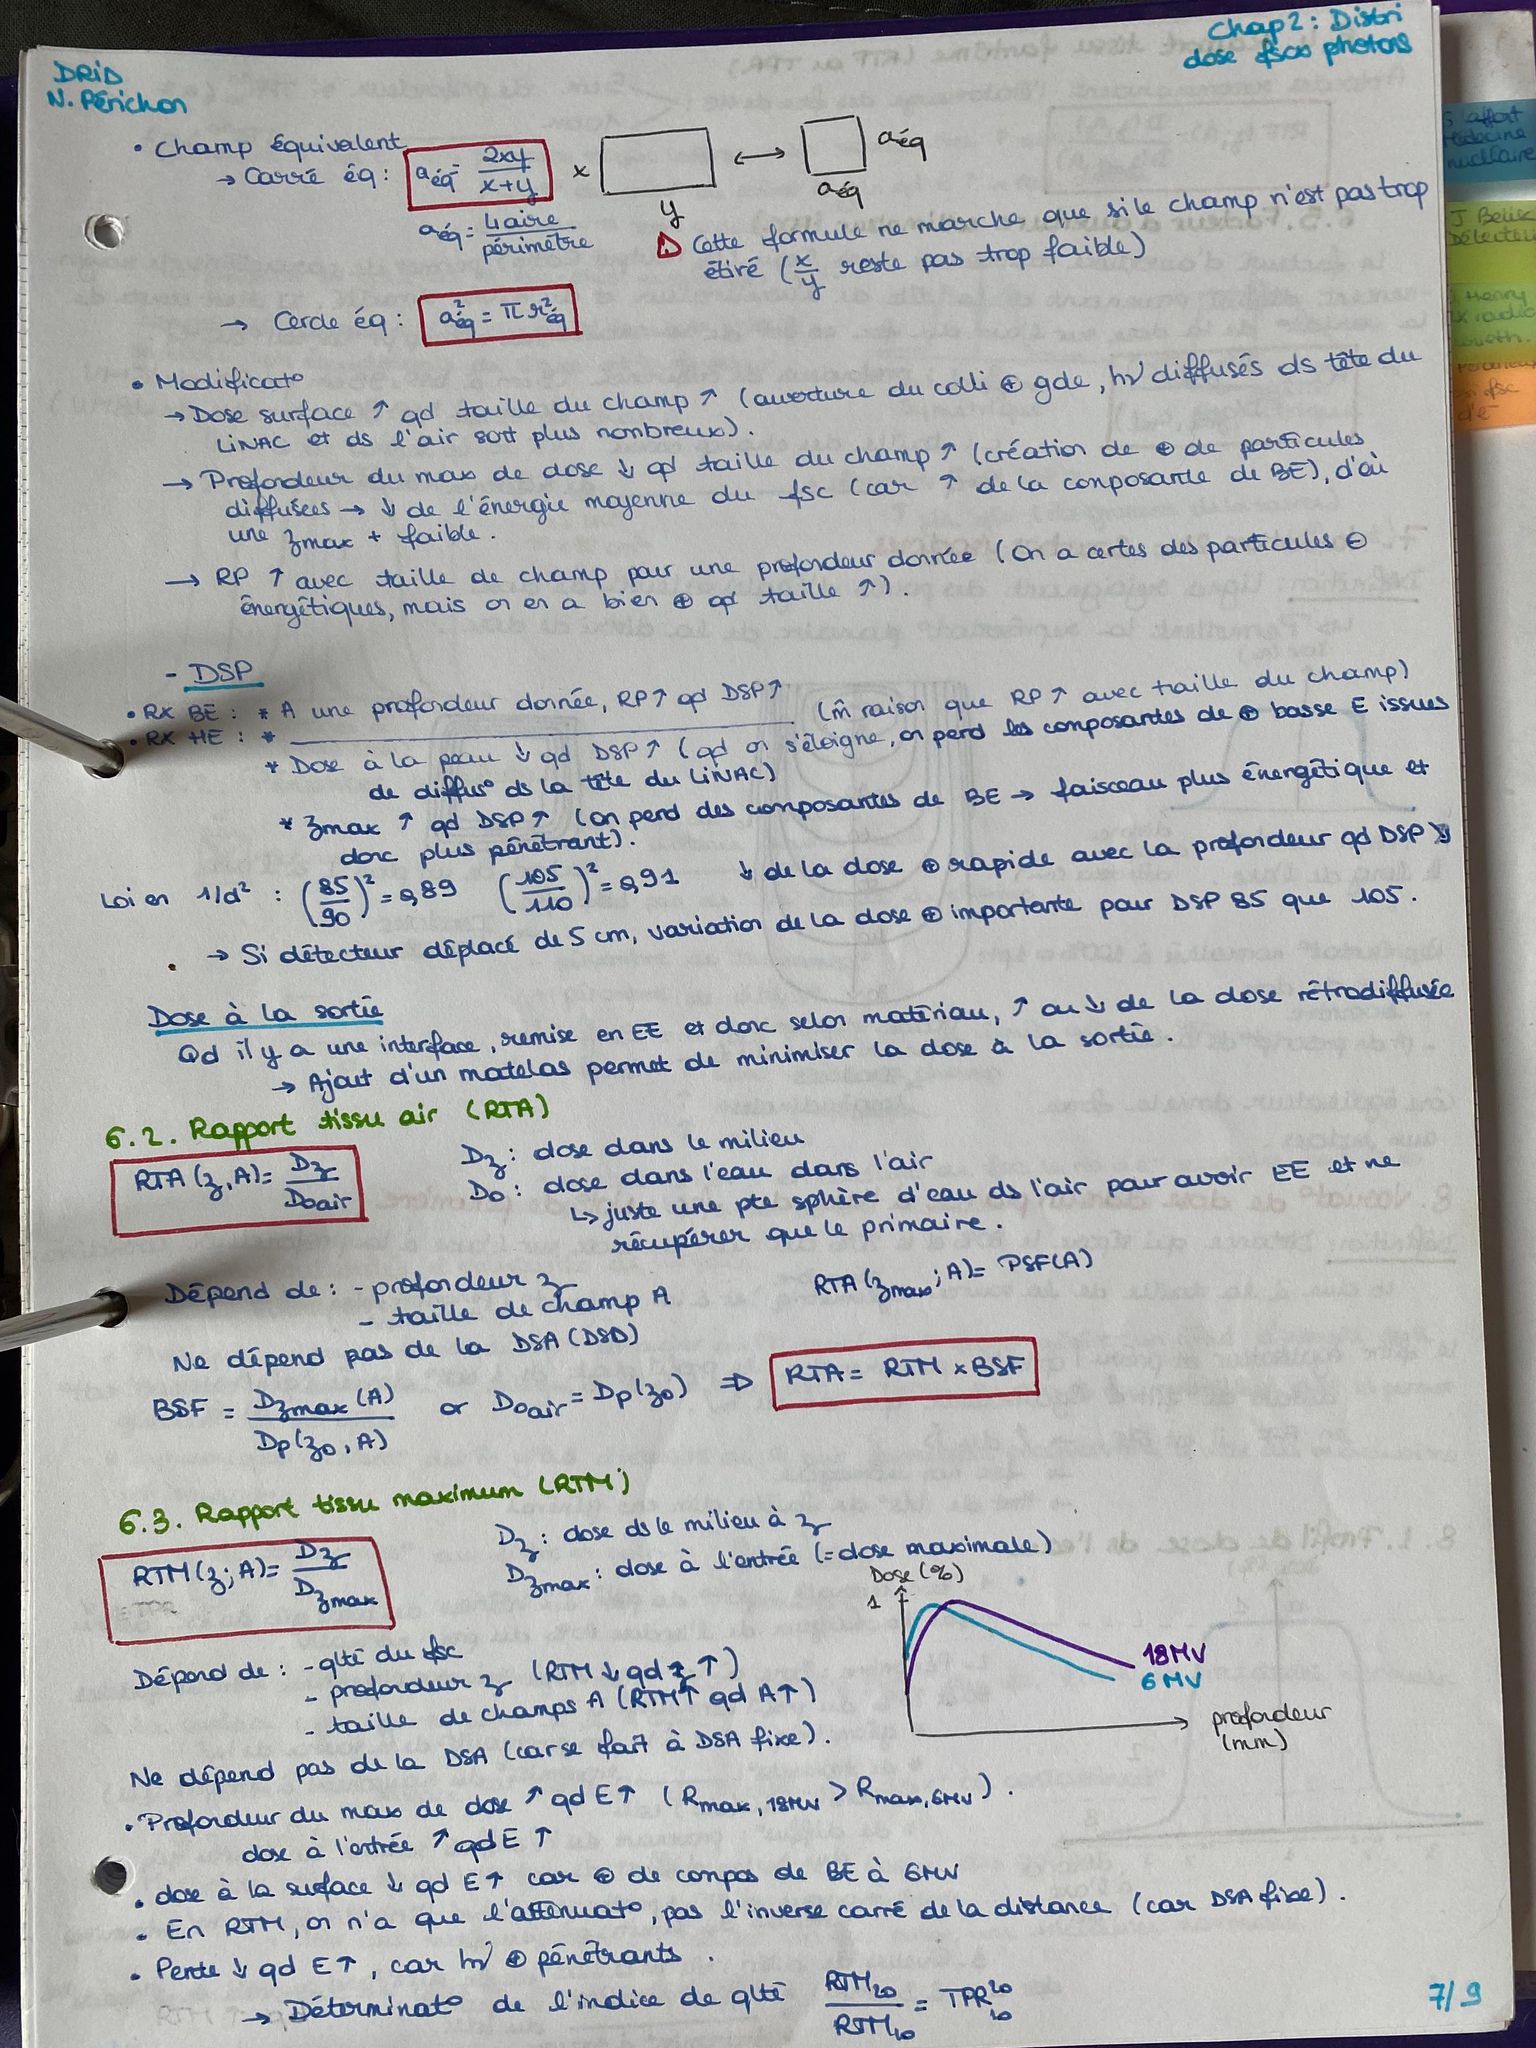 Chap 2 : Distri
dose fsco photons
DRID
N. Périchon
• Champ équivalent
→ Carré éq : aéq = 2xy / x+y
x
y
aéq
aéq
aéq = 4 aire / périmètre
Cette formule ne marche que si le champ n'est pas trop
étiré (x/y reste pas trop faible)
→ Cercle éq : aéq² = π réq²
• Modificat°
→ Dose surface ↑ qd taille du champ ↑ (ouverture du colli ⊕ gde, hν diffusés ds tête du
LINAC et ds l'air sont plus nombreux).
→ Profondeur du max de dose ↓ qd taille du champ ↑ (création de ⊕ de particules
diffusées → ↓ de l'énergie moyenne du fsc (car ↑ de la composante de BE), d'où
une zmax + faible.
→ RP ↑ avec taille de champ pour une profondeur donnée (On a certes des particules ⊖
énergétiques, mais on en a bien ⊕ qd taille ↑).
- DSP
• RX BE : * A une profondeur donnée, RP ↑ qd DSP ↑ (m̂ raison que RP ↑ avec taille du champ)
• RX HE : *
* Dose à la peau ↓ qd DSP ↑ (qd on s'éloigne, on perd les composantes de ⊕ basse E issues
de diffus° ds la tête du LINAC)
* zmax ↑ qd DSP ↑ (on perd des composantes de BE → faisceau plus énergétique et
donc plus pénétrant).
Loi en 1/d² : (85/90)² = 0,89 (105/110)² = 0,91 ↓ de la dose ⊕ rapide avec la profondeur qd DSP ↘
→ Si détecteur déplacé de 5 cm, variation de la dose ⊕ importante pour DSP 85 que 105.
Dose à la sortie
Qd il y a une interface, remise en EE et donc selon matériau, ↑ ou ↓ de la dose rétrodiffusée
→ Ajout d'un matelas permet de minimiser la dose à la sortie.
6.2. Rapport tissu air (RTA)
RTA (z, A) = Dz / D0air
Dz : dose dans le milieu
D0 : dose dans l'eau dans l'air
↳ juste une pte sphère d'eau ds l'air pour avoir EE et ne
récupérer que le primaire.
Dépend de : - profondeur z
- taille de champ A
RTA (zmax ; A) = PSF(A)
Ne dépend pas de la DSA (DSD)
BSF = Dzmax (A) / Dp(z0, A) or D0air = Dp(z0) ⇒ RTA = RTM × BSF
6.3. Rapport tissu maximum (RTM)
RTM (z ; A) = Dz / Dzmax
Dz : dose ds le milieu à z
Dzmax : dose à l'entrée (= dose maximale)
Dose (%)
1
18 MV
6 MV
profondeur
(mm)
Dépend de : - qlté du fsc
- profondeur z (RTM ↓ qd z ↑)
- taille de champs A (RTM ↑ qd A ↑)
Ne dépend pas de la DSA (car se fait à DSA fixe).
• Profondeur du max de dose ↑ qd E ↑ (Rmax, 18MV > Rmax, 6MV).
dose à l'entrée ↑ qd E ↑
• dose à la surface ↓ qd E ↑ car ⊕ de compos de BE à 6MV
• En RTM, on n'a que l'atténuat°, pas l'inverse carré de la distance (car DSA fixe).
• Pente ↓ qd E ↑, car hν ⊕ pénétrants.
→ Déterminat° de l'indice de qlté RTM20 / RTM10 = TPR 20 10
7/9